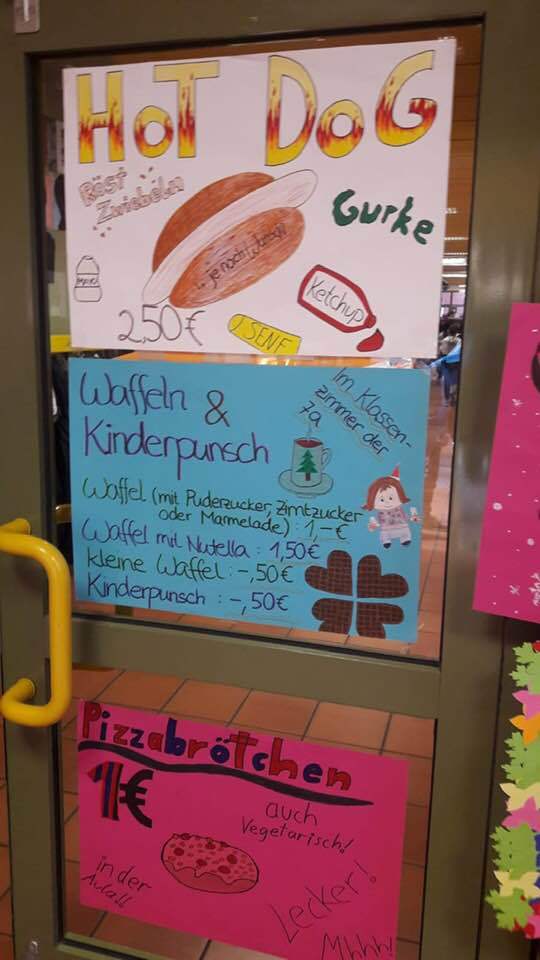 HOT DOG
Röst
Zwiebeln
Gurke
Ketchup
SENF
2,50€
Waffeln &
Kinderpunsch
Im Klassen-
zimmer der
7a
Waffel (mit Puderzucker, Zimtzucker
oder Marmelade): 1,-€
Waffel mit Nutella: 1,50€
kleine Waffel: -,50€
Kinderpunsch: -,50€
Pizzabrötchen
1€
auch
Vegetarisch!
in der
Lecker!
Mhhh!